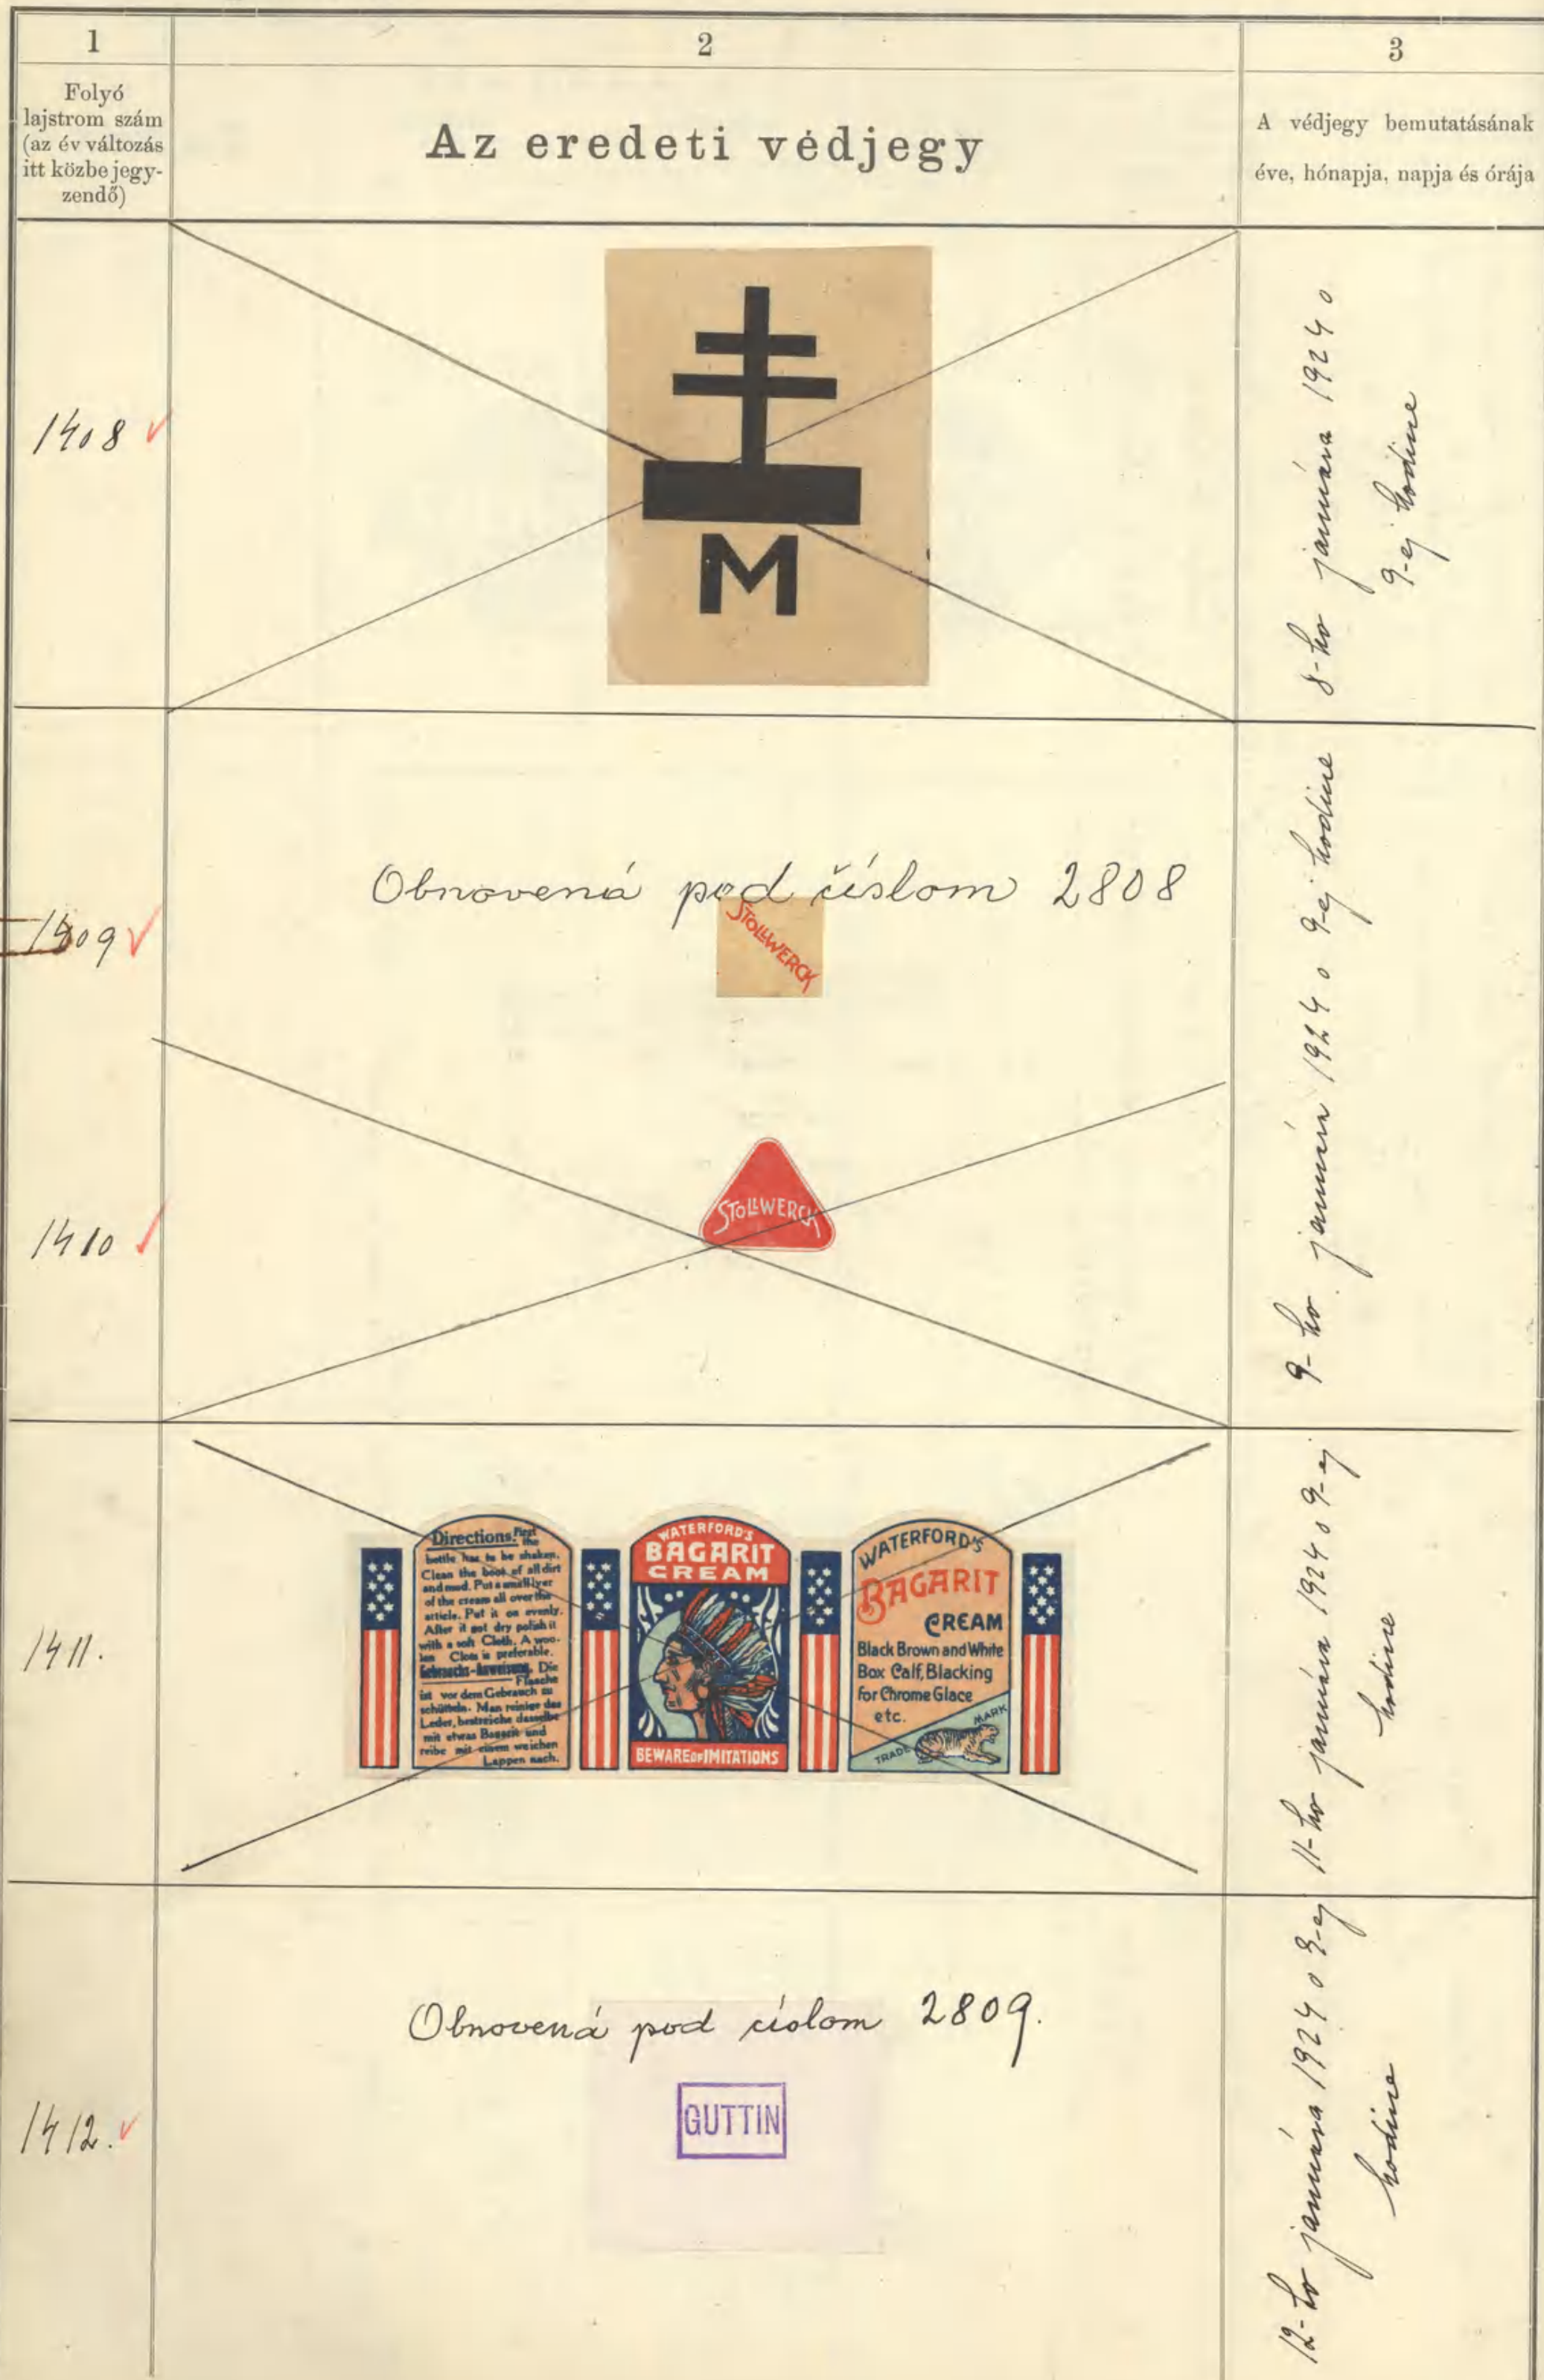 1
2
3
Folyó
lajstrom szám
(az év változás
itt közbe jegy-
zendő)
Az eredeti védjegy
A védjegy bemutatásának
éve, hónapja, napja és órája
1408
M
8-ho januára 1924 o
9-ej hodine
1409
Obnovená pod číslom 2808
STOLLWERCK
1410
STOLLWERCK
9-ho januára 1924 o 9-ej hodine
1411.
Directions. First the
bottle has to be shaken.
Clean the boot of all dirt
and mud. Put a small lyer
of the cream all over the
article. Put it on evenly.
After it got dry polish it
with a soft Cloth. A woo-
len Clots is preferable.
Gebrauchs-Anweisung. Die
Flasche
ist vor dem Gebrauch zu
schütteln. Man reinige das
Leder, bestreiche dasselbe
mit etwas Bagarit und
reibe mit einem weichen
Lappen nach.
WATERFORD'S
BAGARIT
CREAM
BEWARE OF IMITATIONS
WATERFORD'S
BAGARIT
CREAM
Black Brown and White
Box Calf, Blacking
for Chrome Glace
etc.
TRADE MARK
11-ho januára 1924 o 9-ej
hodine
1412.
Obnovená pod císlom 2809.
GUTTIN
12-ho januára 1924 o 9-ej
hodine